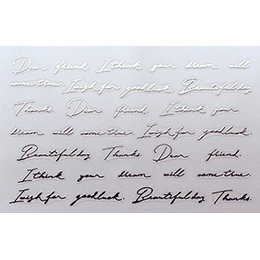 Dear friend. I think your dream will
come true. I wish for good luck. Beautiful day
Thanks. Dear friend. I think your
dream will come true. I wish for good luck.
Beautiful day Thanks. Dear friend.
I think your dream will come true.
I wish for good luck. Beautiful day Thanks.